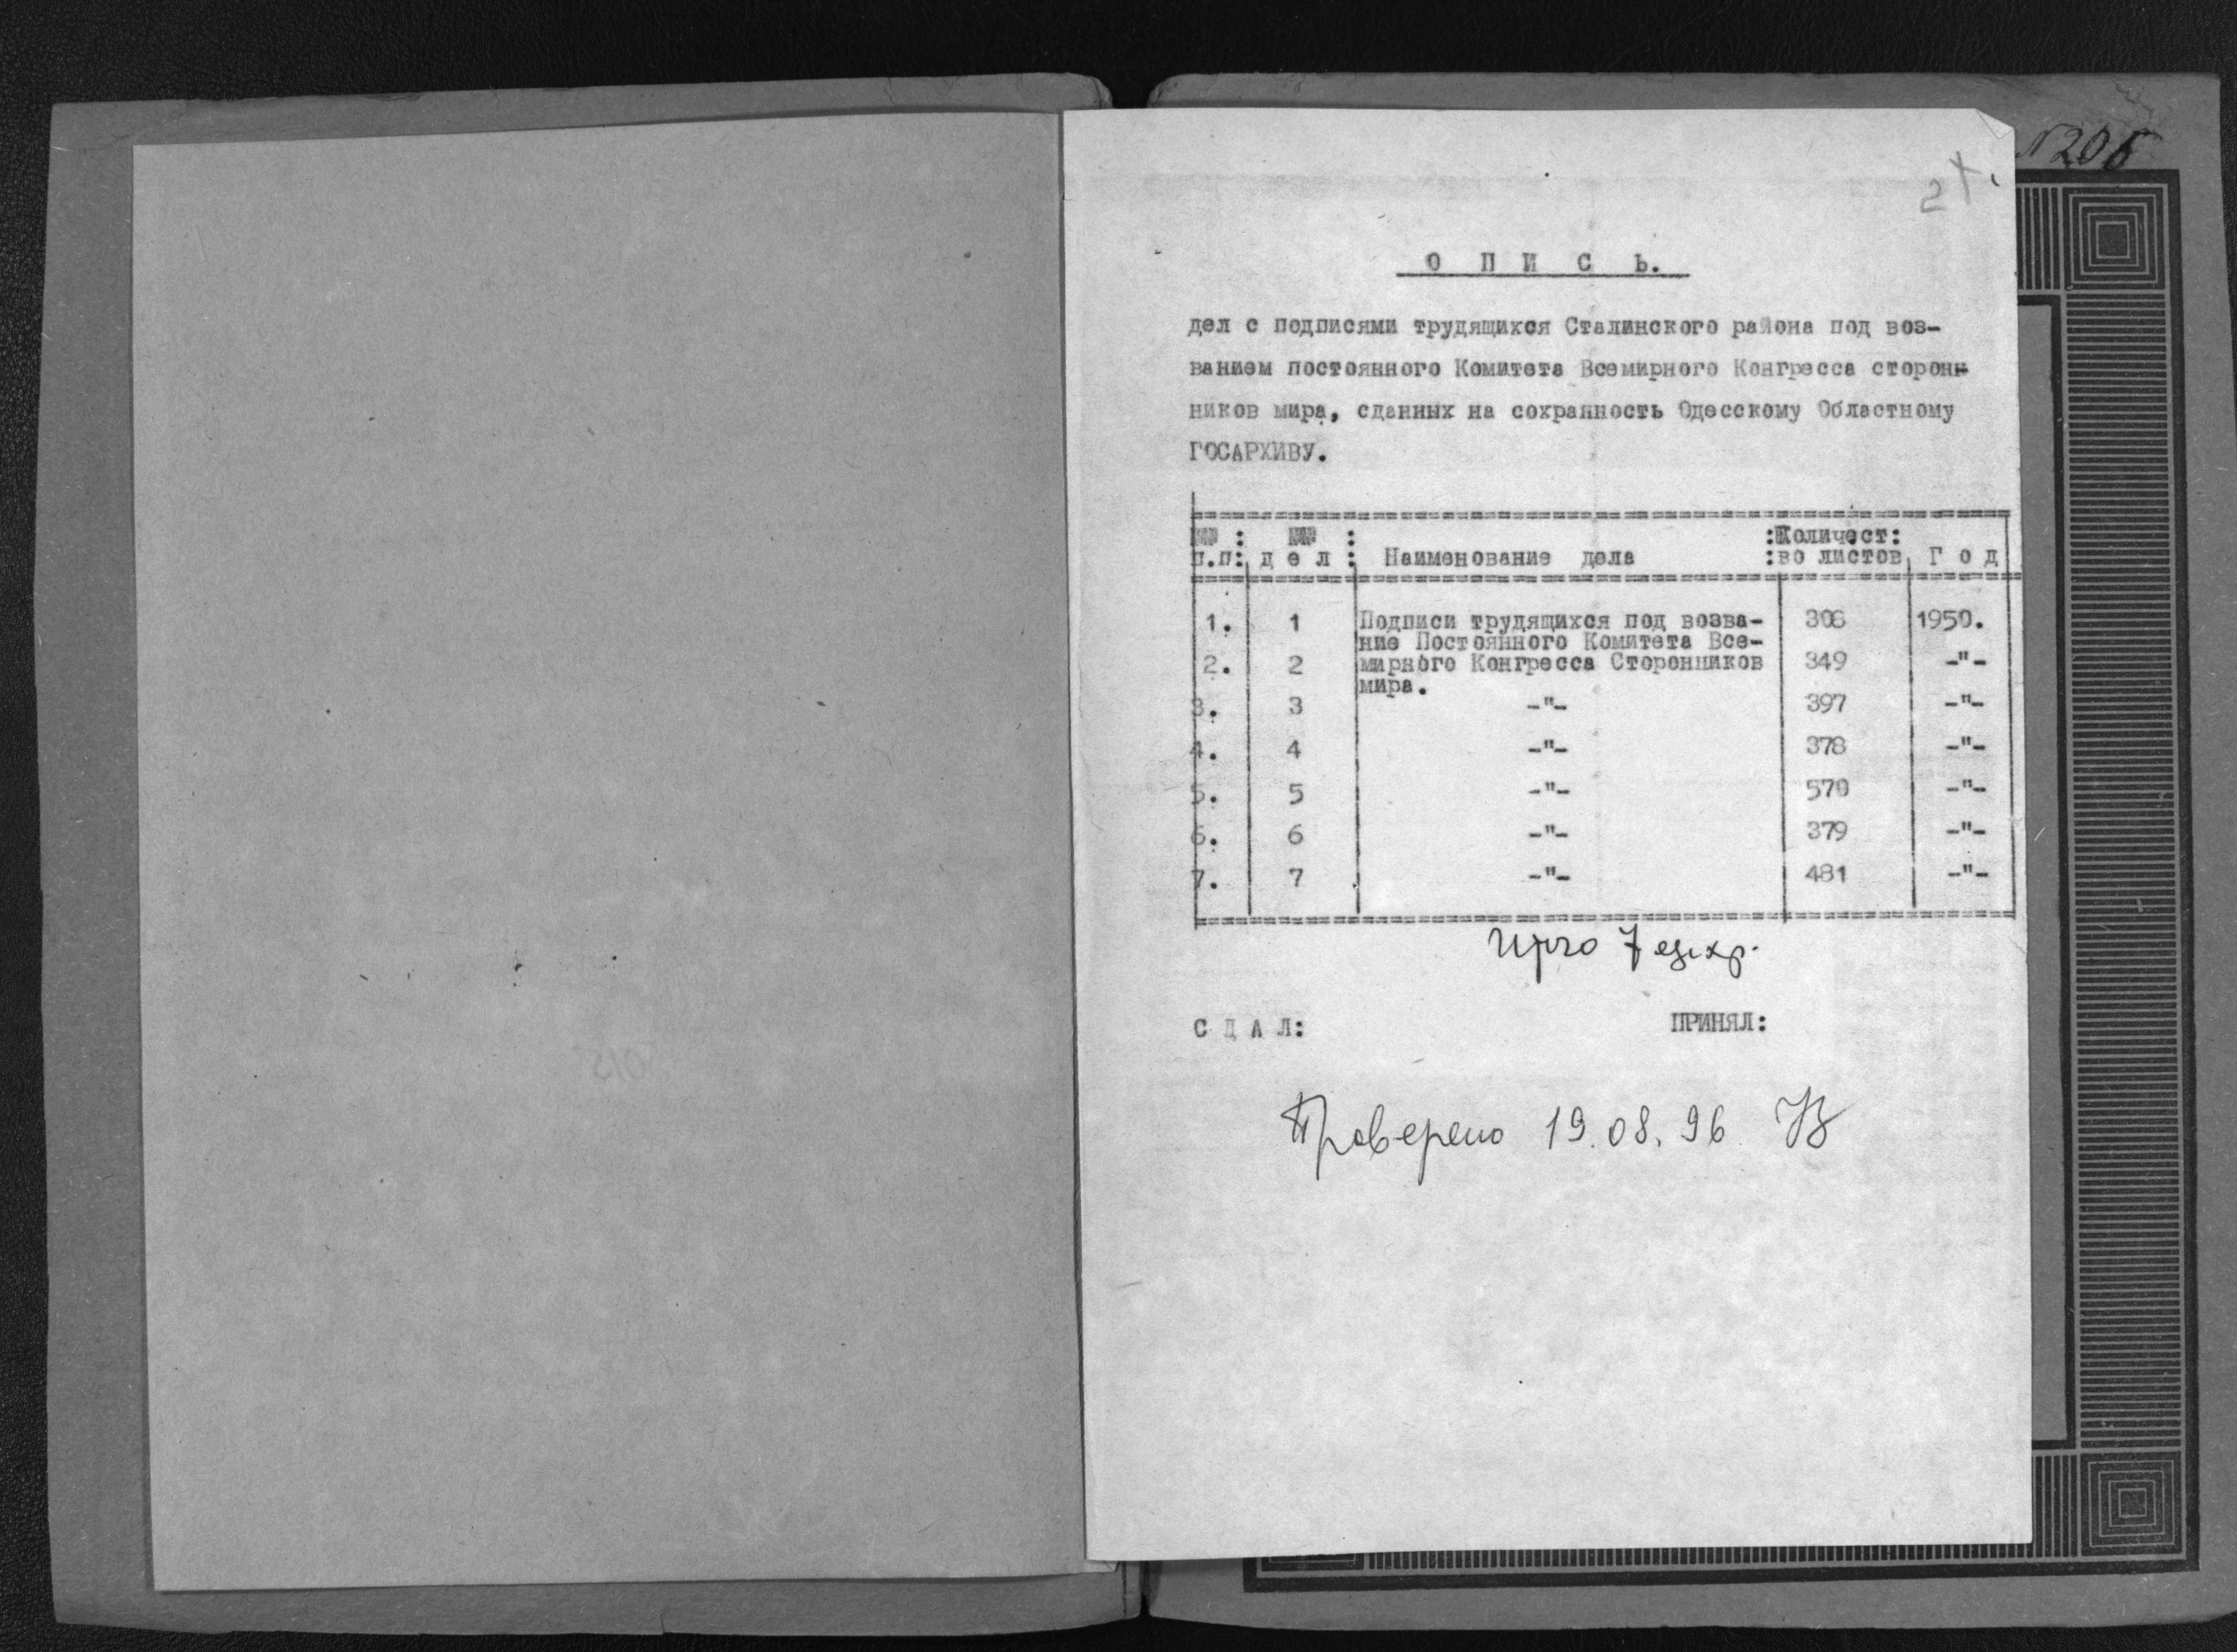 №206
2
О П И С Ь.
дел с подписями трудящихся Сталинского района под воз-
ванием постоянного Комитета Всемирного Конгресса сторон-
ников мира, сданных на сохранность Одесскому Областному
ГОСАРХИВУ.
№№ : №№ : :Количест:
п.п: д е л : Наименование дела :во листов Г о д
1. 1 Подписи трудящихся под возва- 308 1950.
ние Постоянного Комитета Все-
2. 2 мирного Конгресса Сторонников 349 -"-
мира.
3. 3 -"- 397 -"-
4. 4 -"- 378 -"-
5. 5 -"- 570 -"-
6. 6 -"- 379 -"-
7. 7 -"- 481 -"-
Итого 7 ед.хр.
С Д А Л: ПРИНЯЛ:
Проверено 19.08.96